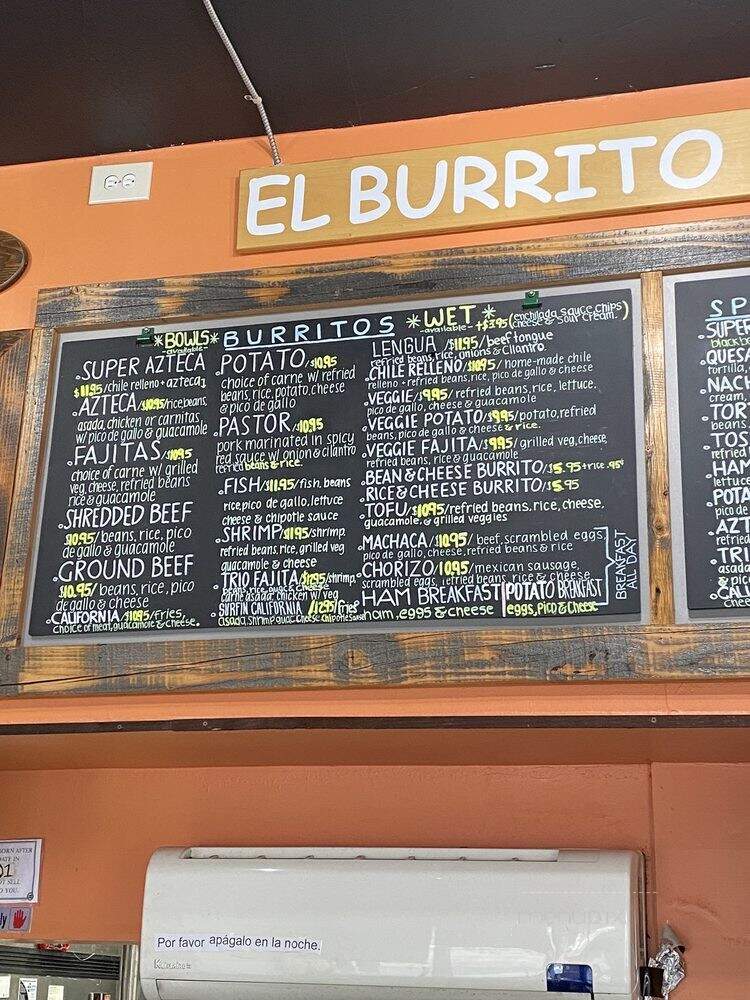 EL BURRITO
*BOWLS*
-available-
BURRITOS
*WET*
-available-
+$3.95 (enchilada sauce, chips, cheese & sour cream.)
SUPER AZTECA
$11.95/chile relleno + azteca
AZTECA/$10.95/rice, beans,
asada, chicken or carnitas
w/pico de gallo & guacamole
FAJITAS/$10.95
choice of carne w/ grilled
veg, cheese, refried beans
rice & guacamole
SHREDDED BEEF
$10.95/beans, rice, pico
de gallo & guacamole
GROUND BEEF
$10.95/ beans, rice, pico
de gallo & cheese
CALIFORNIA/$10.95/fries,
choice of meat, guacamole & cheese.
POTATO/$10.95
choice of carne w/ refried
beans, rice, potato, cheese
& pico de gallo
PASTOR/$10.95
pork marinated in spicy
red sauce w/ onion & cilantro
refried beans & rice.
FISH/$11.95/fish, beans
rice, pico de gallo, lettuce
cheese & chipotle sauce
SHRIMP/$11.95/shrimp,
refried beans, rice, grilled veg
guacamole & cheese
TRIO FAJITA/$12.95/shrimp,
beans, rice, guac & cheese
carne asada, chicken w/ veg
SURFIN CALIFORNIA /12.95/fries
asada, shrimp guac cheese chipotle sauce
LENGUA /$11.95/beef tongue
refried beans, rice, onions & cilantro.
CHILE RELLENO/$10.95/ home-made chile
relleno + refried beans, rice, pico de gallo & cheese
VEGGIE/$9.95/ refried beans, rice, lettuce,
pico de gallo, cheese & guacamole
VEGGIE POTATO/$9.95/potato, refried
beans, pico de gallo & cheese & rice.
VEGGIE FAJITA/$9.95/ grilled veg, cheese,
refried beans, rice & guacamole
BEAN & CHEESE BURRITO/$5.95 + rice .95¢
RICE & CHEESE BURRITO/$5.95
TOFU/$10.95/refried beans, rice, cheese,
guacamole, & grilled veggies
MACHACA/10.95/ beef, scrambled eggs,
pico de gallo, cheese, refried beans & rice
CHORIZO/10.95/mexican sausage,
scrambled eggs, refried beans, rice & cheese
HAM BREAKFAST
ham, eggs & cheese
POTATO BREAKFAST
eggs, pico & cheese
BREAKFAST
ALL DAY
SP
SUPER
black be
QUESA
tortilla,
NACH
cream,
TOR
beans,
TOS
refried
HAM
lettuce
POTA
pico de
AZT
refried
TRI
asada
& pic
CALI
chee
Por favor apágalo en la noche.
BORN AFTER
DATE IN
01
NOT SELL
TO YOU.